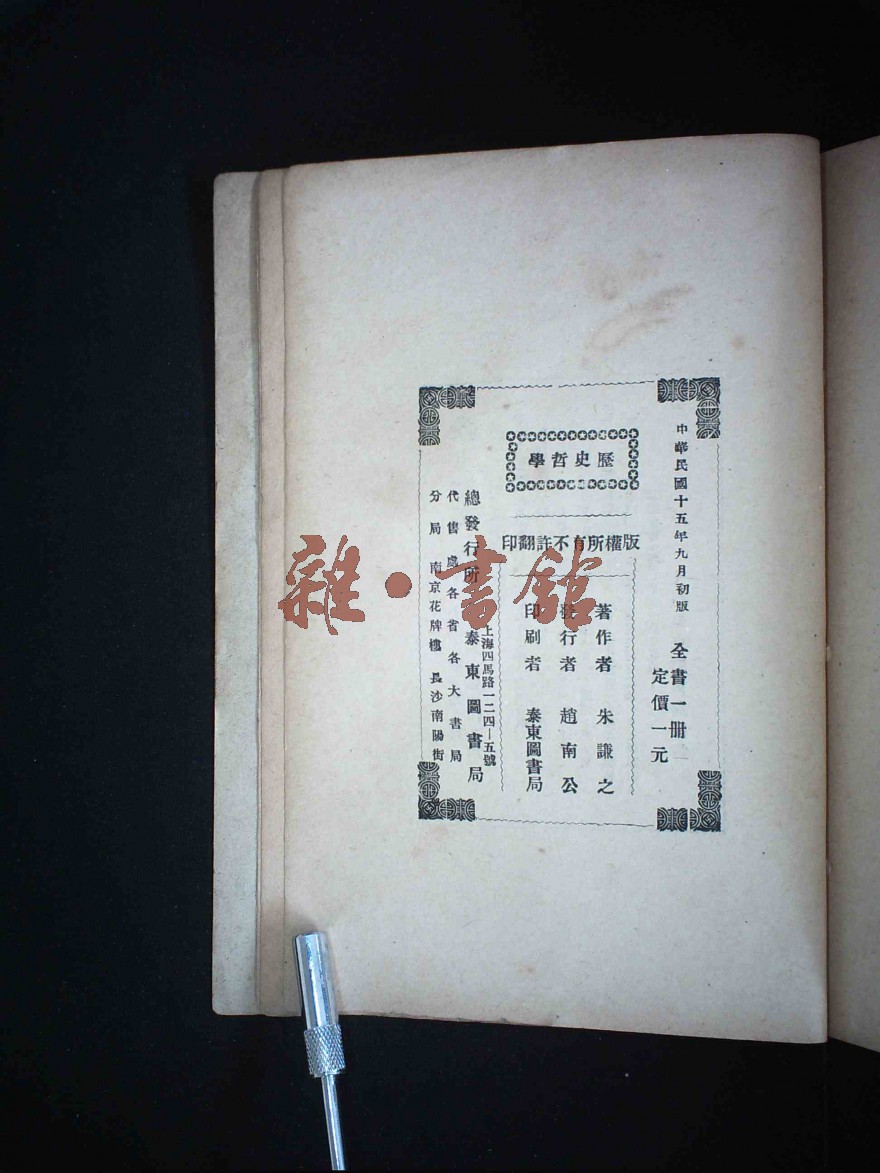 中華民國十五年九月初版
全書一册
定價一元
歷史哲學
版權所有不許翻印
著作者 朱謙之
發行者 趙南公
印刷者 泰東圖書局
上海四馬路一二四—五號
總發行所 泰東圖書局
代售處 各省各大書局
分局 南京花牌樓 長沙南陽街
雜·書館